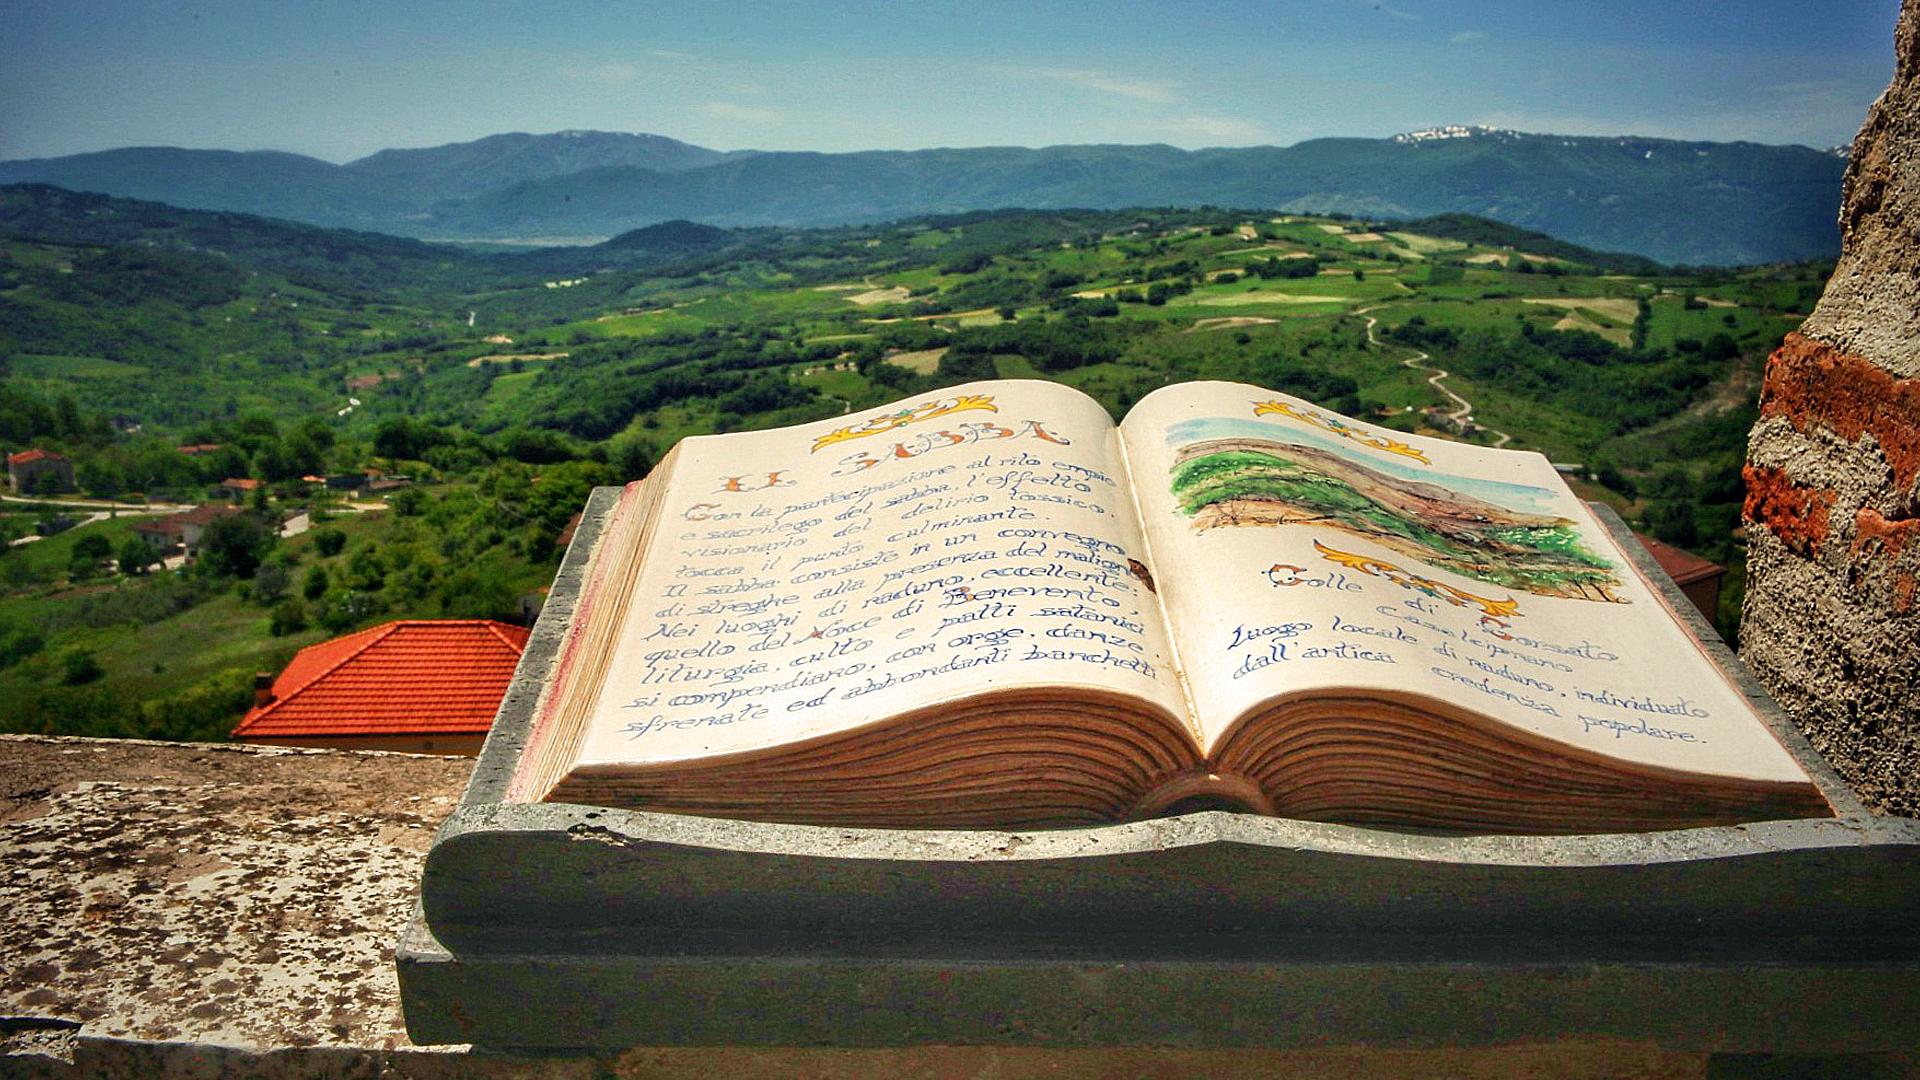 IL SABBA
Con la partecipazione al rito empio
e sacrilego del sabba, l'effetto
visionario del delirio tossico,
tocca il punto culminante.
Il sabba consiste in un convegno
di streghe alla presenza del maligno
Nei luoghi di raduno, eccellente:
quello del Noce di Benevento,
liturgia, culto e patti satanici
si compendiano, con orge, danze
sfrenate ed abbondanti banchetti.
Colle di Gorsato
Casalciprano
Luogo locale di raduno, individuato
dall'antica credenza popolare.